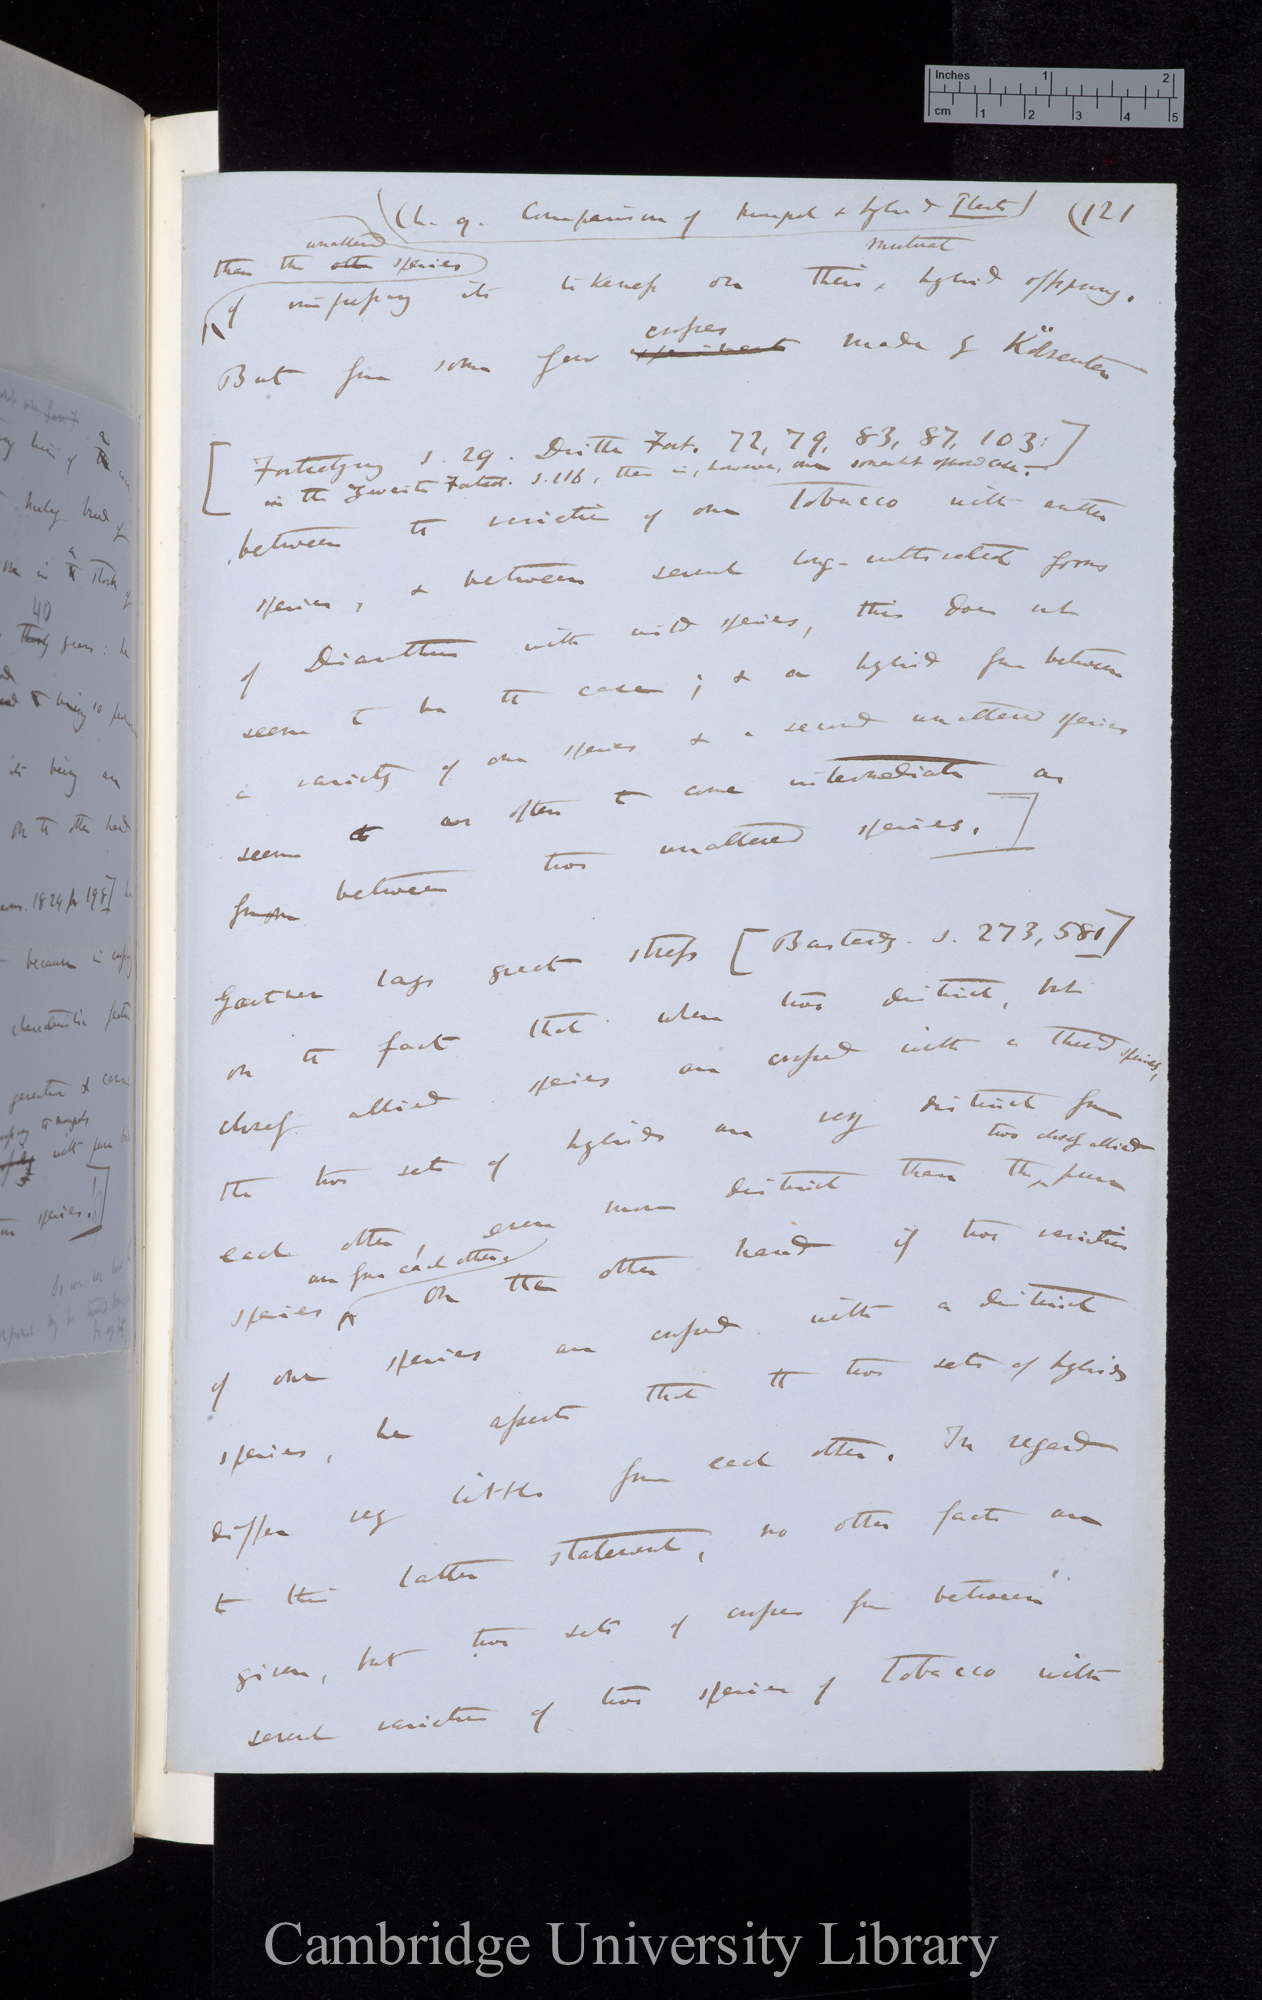 Inches 1 2
cm 1 2 3 4 5
(Ch. 9. Comparison of Mongrel & hybrid Plants) (121
unaltered
than the other species
mutual
of impressing its likeness on their hybrid offspring.
crosses
But from some few experiments made by Kölreuter
[Fortsetzung s. 29. Dritte Fort. 72, 79, 83, 87, 103:
in the Zweite Fortset. s. 116, there is, however, one somewhat opposed case.]
between the varieties of one Tobacco with another
species, & between several long-cultivated forms
of Dianthus with wild species, this does not
seem to be the case; & a hybrid from between
a variety of one species & a second unaltered species
seems to as often to come intermediate as
from between two unaltered species.]
Gartner lays great stress [Bastardz. s. 273, 581]
on the fact that when two distinct, but
closely allied species are crossed with a third species,
the two sets of hybrids are very distinct from
two closely allied
each other, even more distinct than the pure
are from each other
species On the other hand if two varieties
of one species are crossed with a distinct
species, he asserts that the two sets of hybrids
differ very little from each other. In regard
to this latter statement, no other facts are
given, but two sets of crosses from between
several varieties of two species of Tobacco with
a
40
Thirty years: he
its being an
on the other hand
1824 p 198]
because in
characteristic
species.]
Cambridge University Library